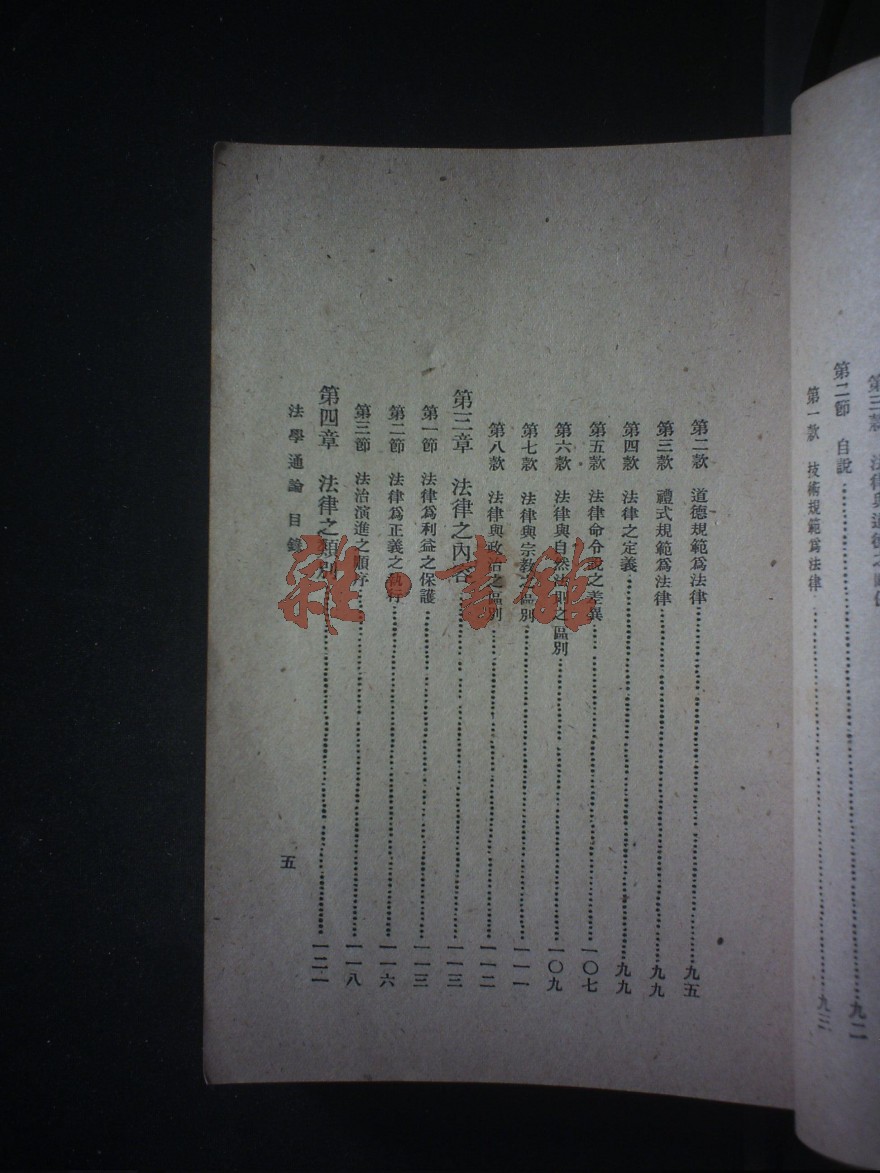 第二節 自說……九二
第一款 技術規範爲法律……九三
第二款 道德規範爲法律……九五
第三款 禮式規範爲法律……九九
第四款 法律之定義……九九
第五款 法律命令說之差異……一〇七
第六款 法律與自然法則之區別……一〇九
第七款 法律與宗教之區別……一一一
第八款 法律與政治之區別……一一二
第三章 法律之內容……一一三
第一節 法律爲利益之保護……一一三
第二節 法律爲正義之執行……一一六
第三節 法治演進之順序……一一八
第四章 法律之類別……一二一
法學通論 目錄
五
雜·書館